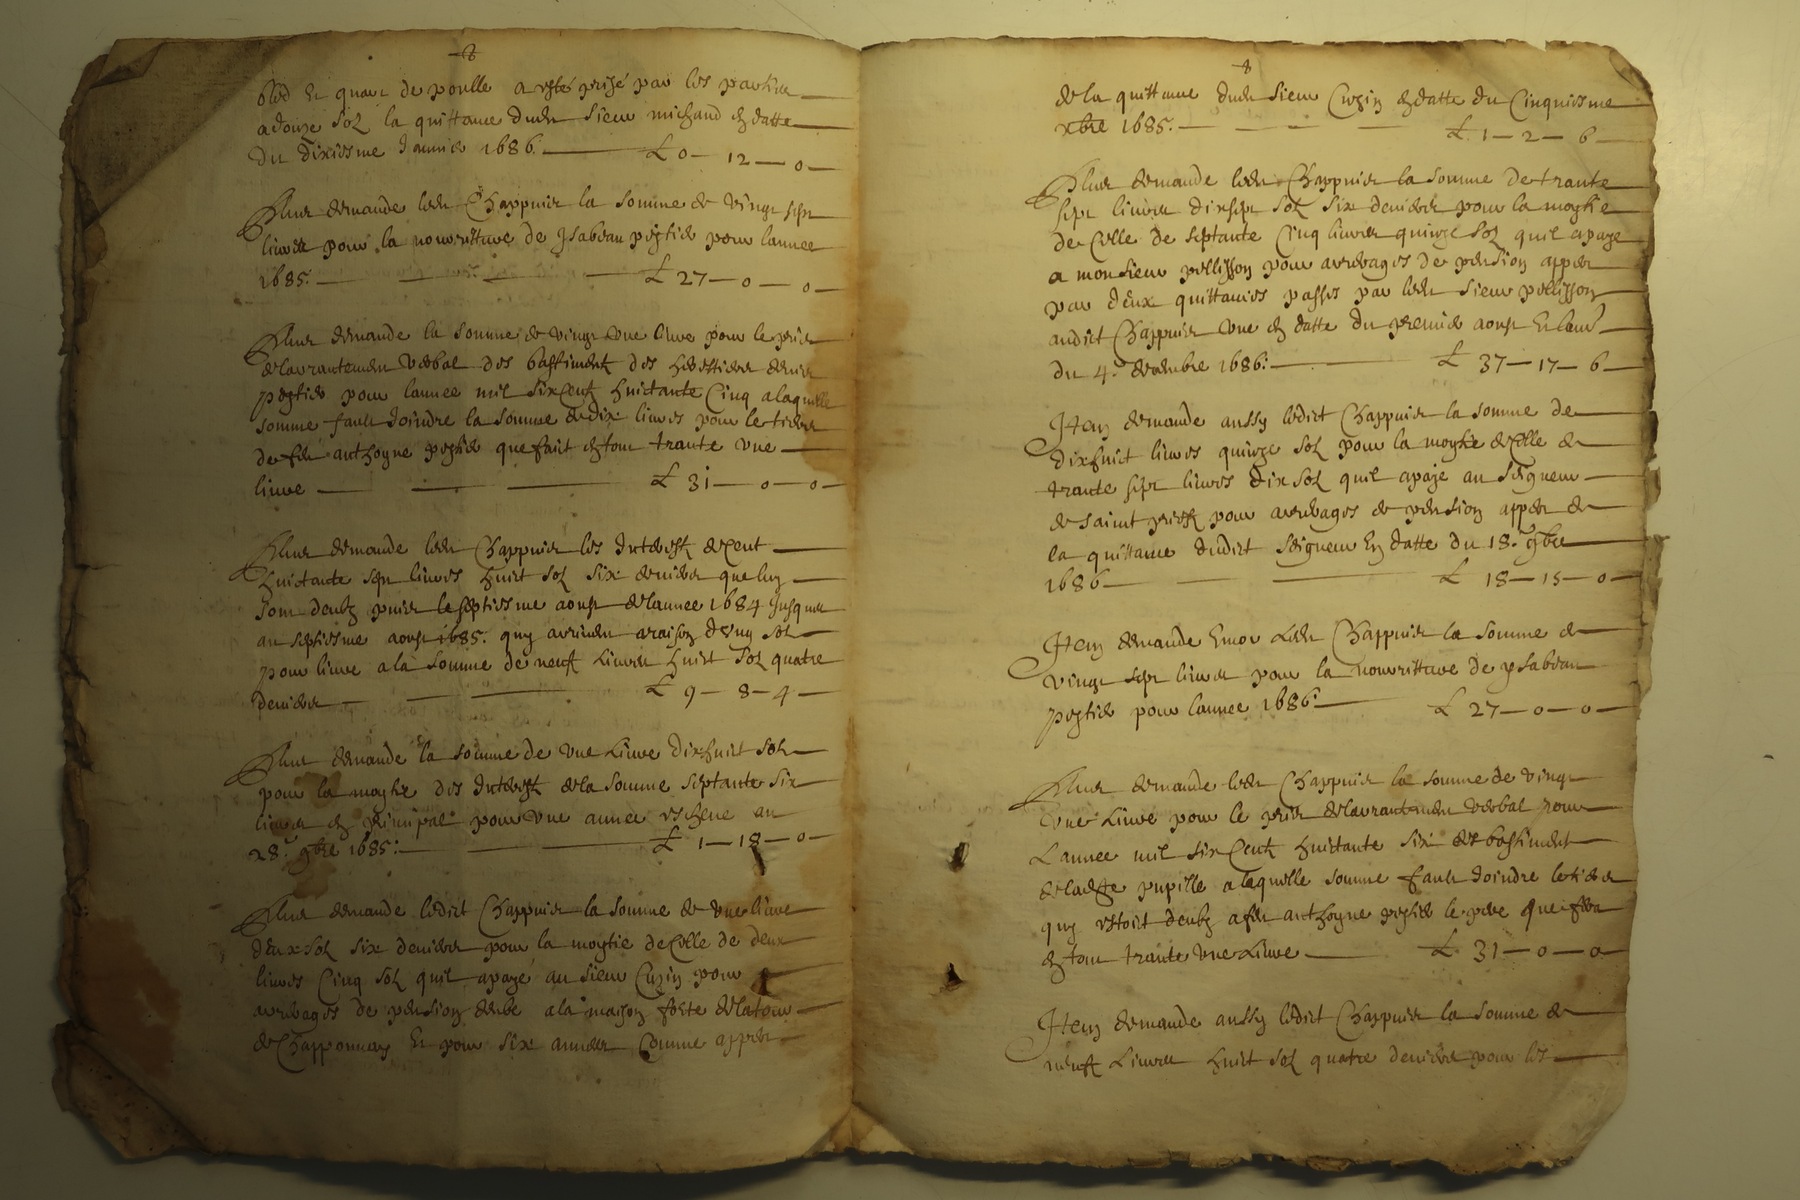 8
bled et quart de poulle a esté prisé par les parties
a douze solz la quittance dudit sieur michaud en datte
du dixiesme Janvier 1686. £ 0 — 12 — 0
Plus demande ledit Chappuis la somme de vingt sept
livres pour la nourritture de Jsabeau pegtier pour lannee
1685. £ 27 — 0 — 0
Plus demande la somme de vingt une livre pour le prix
de larrantement verbal des bastiments des heretiers
pegtier pour lannee mil six Centz huictante Cinq a laquelle
somme fault Joindre la somme de dix livres pour le
de feu anthoyne pegtier que faict en tout trante une
livre £ 31 — 0 — 0
Plus demande ledit Chappuis les Interestz de Cent
huictante sept livres huict solz six deniers que luy
sont deubz puis le septiesme aoust de lannee 1684 Jusques
au septiesme aoust 1685. quy arrivent a raison d'ung sol
pour livre a la somme de neuf Livres huict solz quatre
deniers £ 9 — 8 — 4
Plus demande la somme de une Livre dix huict solz
pour la moytie des Interestz de la somme septante six
livres en principal pour une annee escheue au
28.e 9bre 1685: £ 1 — 18 — 0
Plus demande ledict Chappuis la somme de une livre
deux solz six deniers pour la moytie de Celle de deux
livres Cinq solz quil a payé au sieur Cuzin pour
arrerages de pension deube a la maison forte de la tour
de Chapponnay Et pour six annees Comme appert
8
de la quittance dudit sieur Cuzin en datte du Cinquiesme
xbre 1685. £ 1 — 2 — 6
Plus demande ledit Chappuis la somme de trante
sept livres dix sept solz six deniers pour la moytie
de Celle de septante Cinq livres quinze solz quil a paye
a monsieur pellisson pour arrerages de pension appert
par deux quittances passes par ledit sieur pellisson
audict Chappuis une en datte du premier aoust Et lautre
du 4.e decembre 1686: £ 37 — 17 — 6
Item demande aussy ledict Chappuis la somme de
dix huict livres quinze solz pour la moytie de Celle de
trante sept livres dix solz quil a paye au seigneur
de saint priest pour arrerages de pension appert de
la quittance dudict seigneur En datte du 18.e 9bre
1686 £ 18 — 15 — 0
Item demande Encor Ledit Chappuis la somme de
vingt sept livres pour la nourritture de ysabeau
pegtier pour lannee 1686: £ 27 — 0 — 0
Plus demande ledit Chappuis la somme de vingt
une Livre pour le prix de larrantement verbal pour
Lannee mil six Centz huictante six des bastiments
de ladite pupille a laquelle somme fault Joindre
quy estoit deubz a feu anthoyne pegtier le pere que fera
en tout trante une Livre £ 31 — 0 — 0
Item demande aussy ledict Chappuis la somme de
neuf Livres huict solz quatre deniers pour les